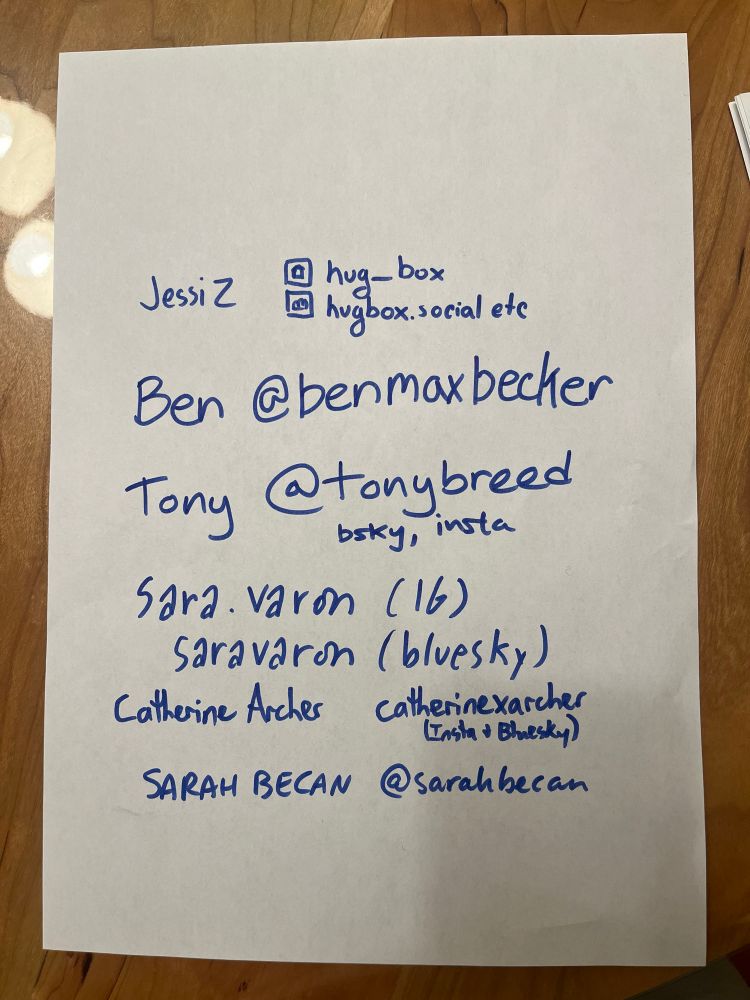 Jessi Z hug_box
hugbox.social etc
Ben @benmaxbecker
Tony @tonybreed
bsky, insta
Sara.varon (IG)
saravaron (bluesky)
Catherine Archer catherinexarcher
(Insta + Bluesky)
SARAH BECAN @sarahbecan